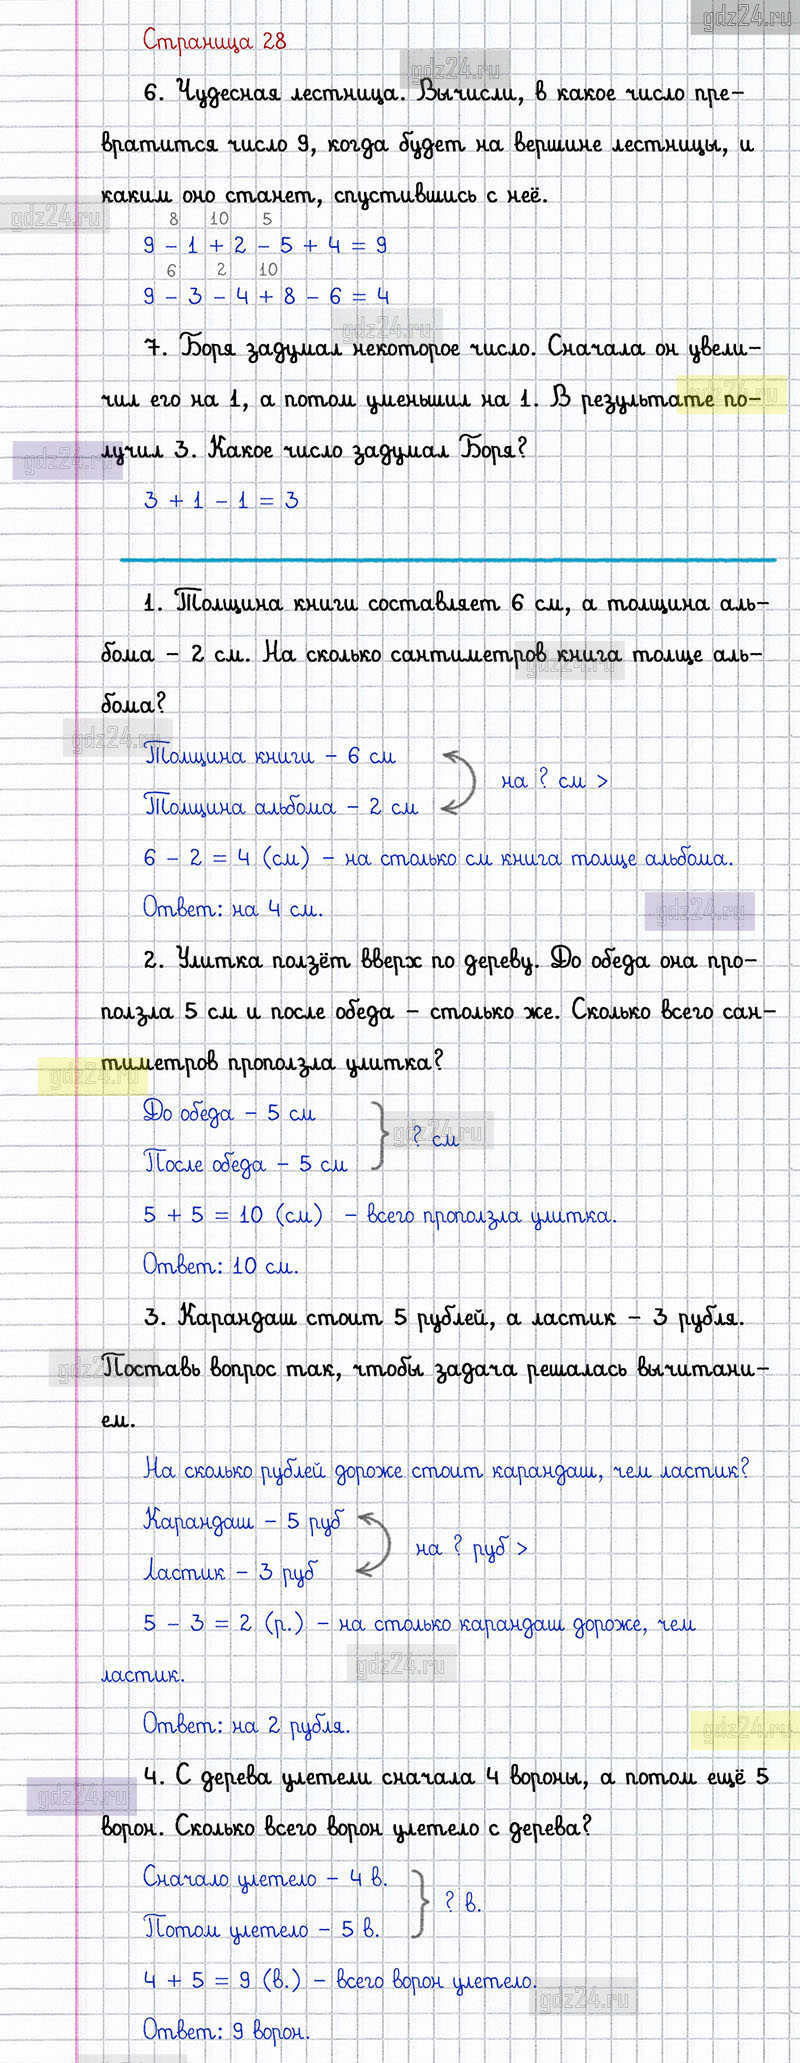 gdz24.ru
Страница 28
gdz24.ru
6. Чудесная лестница. Вычисли, в какое число пре-
вратится число 9, когда будет на вершине лестницы, и
каким оно станет, спустившись с неё.
gdz24.ru
8 10 5
9 - 1 + 2 - 5 + 4 = 9
6 2 10
9 - 3 - 4 + 8 - 6 = 4
gdz24.ru
7. Боря задумал некоторое число. Сначала он увели-
чил его на 1, а потом уменьшил на 1. В результате по-
gdz24.ru
лучил 3. Какое число задумал Боря?
gdz24.ru
3 + 1 - 1 = 3
1. Толщина книги составляет 6 см, а толщина аль-
бома - 2 см. На сколько сантиметров книга толще аль-
gdz24.ru
бома?
gdz24.ru
Толщина книги - 6 см
на ? см >
Толщина альбома - 2 см
6 - 2 = 4 (см) - на столько см книга толще альбома.
Ответ: на 4 см.
gdz24.ru
2. Улитка ползёт вверх по дереву. До обеда она про-
ползла 5 см и после обеда - столько же. Сколько всего сан-
тиметров проползла улитка?
gdz24.ru
До обеда - 5 см
? см
gdz24.ru
После обеда - 5 см
5 + 5 = 10 (см) - всего проползла улитка.
Ответ: 10 см.
3. Карандаш стоит 5 рублей, а ластик - 3 рубля.
Поставь вопрос так, чтобы задача решалась вычитани-
gdz24.ru
ем.
На сколько рублей дороже стоит карандаш, чем ластик?
Карандаш - 5 руб
на ? руб >
Ластик - 3 руб
5 - 3 = 2 (р.) - на столько карандаш дороже, чем
gdz24.ru
ластик.
Ответ: на 2 рубля.
gdz24.ru
4. С дерева улетели сначала 4 вороны, а потом ещё 5
gdz24.ru
ворон. Сколько всего ворон улетело с дерева?
Сначало улетело - 4 в.
? в.
Потом улетело - 5 в.
4 + 5 = 9 (в.) - всего ворон улетело.
gdz24.ru
Ответ: 9 ворон.